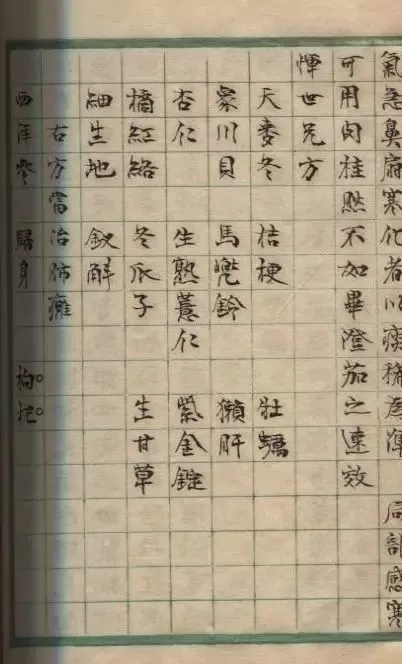 氣急鼻腐寒化者以痰稀為 局部感寒
可用肉桂然不如畢澄茄之速效
惲世兄方
天麥冬 桔梗 牡蠣
象川貝 馬兜鈴 獺肝
杏仁 生熟薏仁 紫金錠
橘紅絡 冬瓜子 生甘草
細生地 釵斛
右方當治肺癰
西洋參 歸身 枸杞